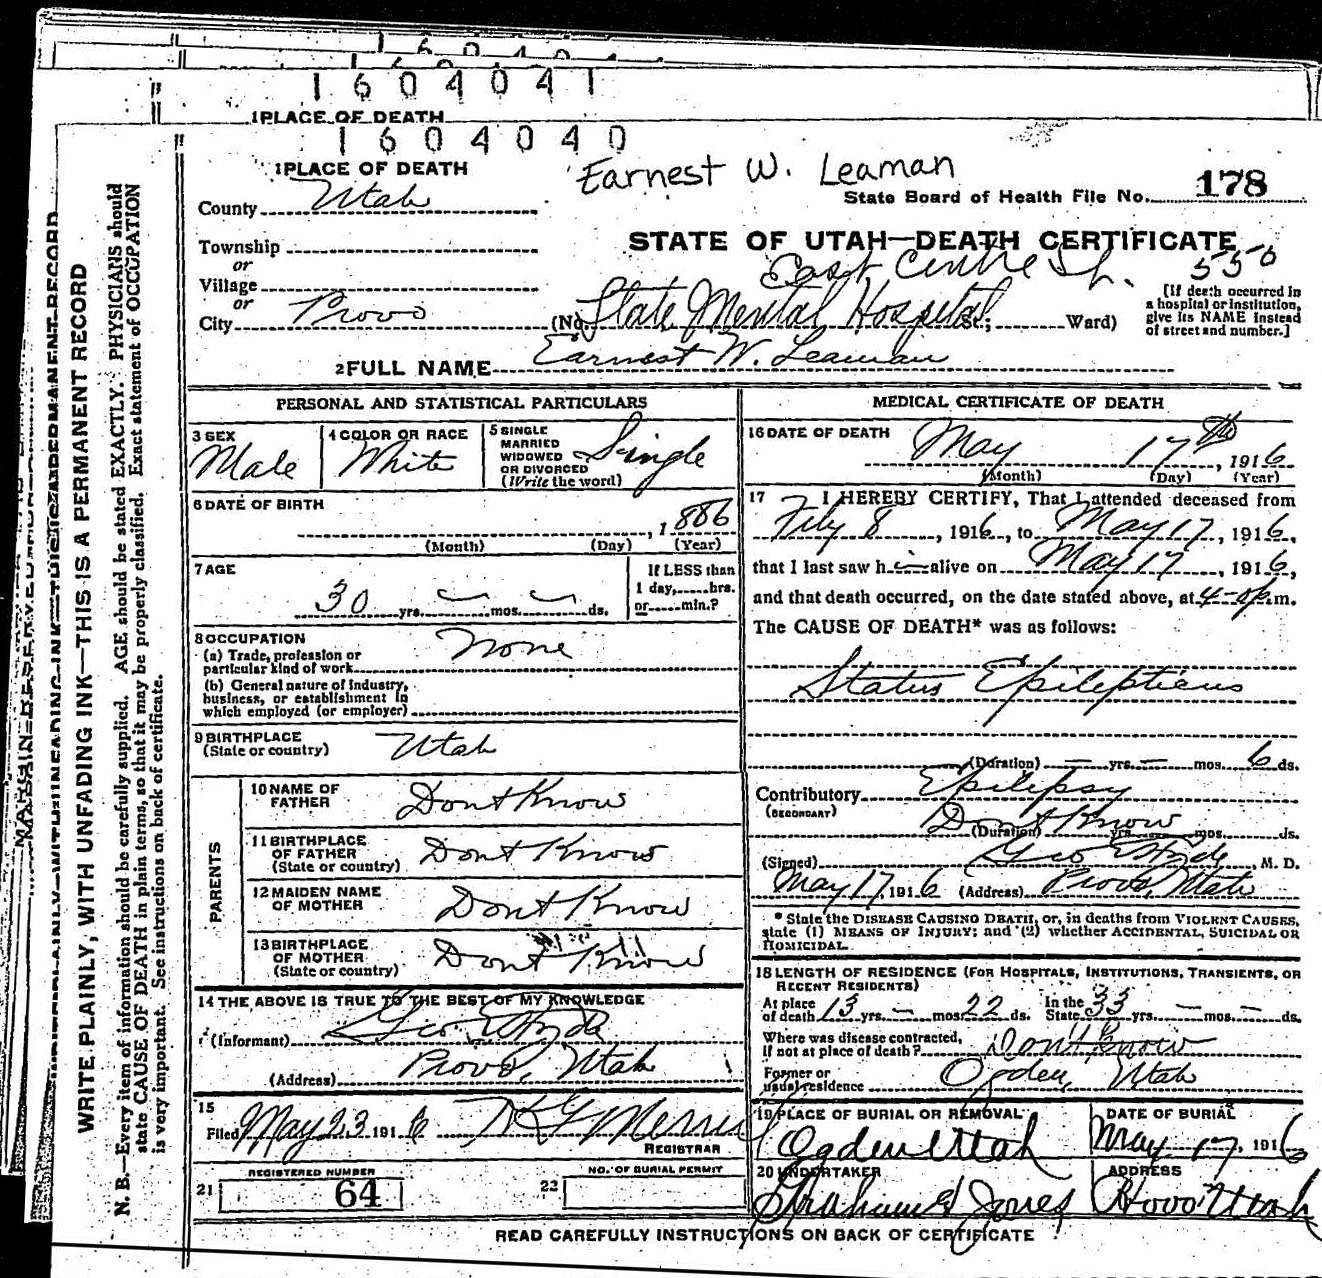 1 6 0 4 0 4 1
1PLACE OF DEATH
1 6 0 4 0 4 0
1PLACE OF DEATH
Earnest W. Leaman
State Board of Health File No. 178
County Utah
STATE OF UTAH—DEATH CERTIFICATE
Township
or
Village
or
City Provo
East Centre St. 550
(No. State Mental Hospital St.; Ward)
[If death occurred in
a hospital or institution,
give its NAME instead
of street and number.]
2FULL NAME Earnest W. Leaman
PERSONAL AND STATISTICAL PARTICULARS
3 SEX
Male
4 COLOR OR RACE
White
5 SINGLE
MARRIED
WIDOWED
OR DIVORCED
(Write the word)
Single
6 DATE OF BIRTH
, 1886
(Month) (Day) (Year)
7 AGE
30 yrs. — mos. — ds.
If LESS than
1 day, hrs.
or min.?
8 OCCUPATION
(a) Trade, profession or
particular kind of work
None
(b) General nature of Industry,
business, or establishment in
which employed (or employer)
9 BIRTHPLACE
(State or country)
Utah
PARENTS
10 NAME OF
FATHER
Dont Know
11 BIRTHPLACE
OF FATHER
(State or country)
Dont Know
12 MAIDEN NAME
OF MOTHER
Dont Know
13 BIRTHPLACE
OF MOTHER
(State or country)
Dont Know
14 THE ABOVE IS TRUE TO THE BEST OF MY KNOWLEDGE
(Informant) Geo E Hyde
(Address) Provo, Utah
15
Filed May 23 1916
REGISTRAR
REGISTERED NUMBER
21 64
NO. OF BURIAL PERMIT
22
MEDICAL CERTIFICATE OF DEATH
16 DATE OF DEATH
May 17th, 1916
(Month) (Day) (Year)
17 I HEREBY CERTIFY, That I attended deceased from
Feby 8, 1916, to May 17, 1916,
that I last saw him alive on May 17, 1916,
and that death occurred, on the date stated above, at 4-0p.m.
The CAUSE OF DEATH* was as follows:
Status Epilepticus
(Duration) — yrs. — mos. 6 ds.
Contributory Epilepsy
(SECONDARY)
Dont Know
(Duration) yrs. mos. ds.
(Signed) Geo E Hyde, M. D.
May 17, 1916 (Address) Provo, Utah
* State the DISEASE CAUSING DEATH, or, in deaths from VIOLENT CAUSES,
state (1) MEANS OF INJURY; and (2) whether ACCIDENTAL, SUICIDAL OR
HOMICIDAL.
18 LENGTH OF RESIDENCE (FOR HOSPITALS, INSTITUTIONS, TRANSIENTS, OR
RECENT RESIDENTS)
At place
of death 13 yrs. — mos. 22 ds.
In the
State 33 yrs. — mos. — ds.
Where was disease contracted,
if not at place of death? Dont Know
Former or
usual residence Ogden, Utah
19 PLACE OF BURIAL OR REMOVAL
Ogden Utah
DATE OF BURIAL
May 17, 1916
20 UNDERTAKER
Graham & Jones
ADDRESS
Provo Utah
READ CAREFULLY INSTRUCTIONS ON BACK OF CERTIFICATE
WRITE PLAINLY, WITH UNFADING INK—THIS IS A PERMANENT RECORD
N. B.—Every item of information should be carefully supplied. AGE should be stated EXACTLY. PHYSICIANS should
state CAUSE OF DEATH in plain terms, so that it may be properly classified. Exact statement of OCCUPATION
is very important. See instructions on back of certificate.